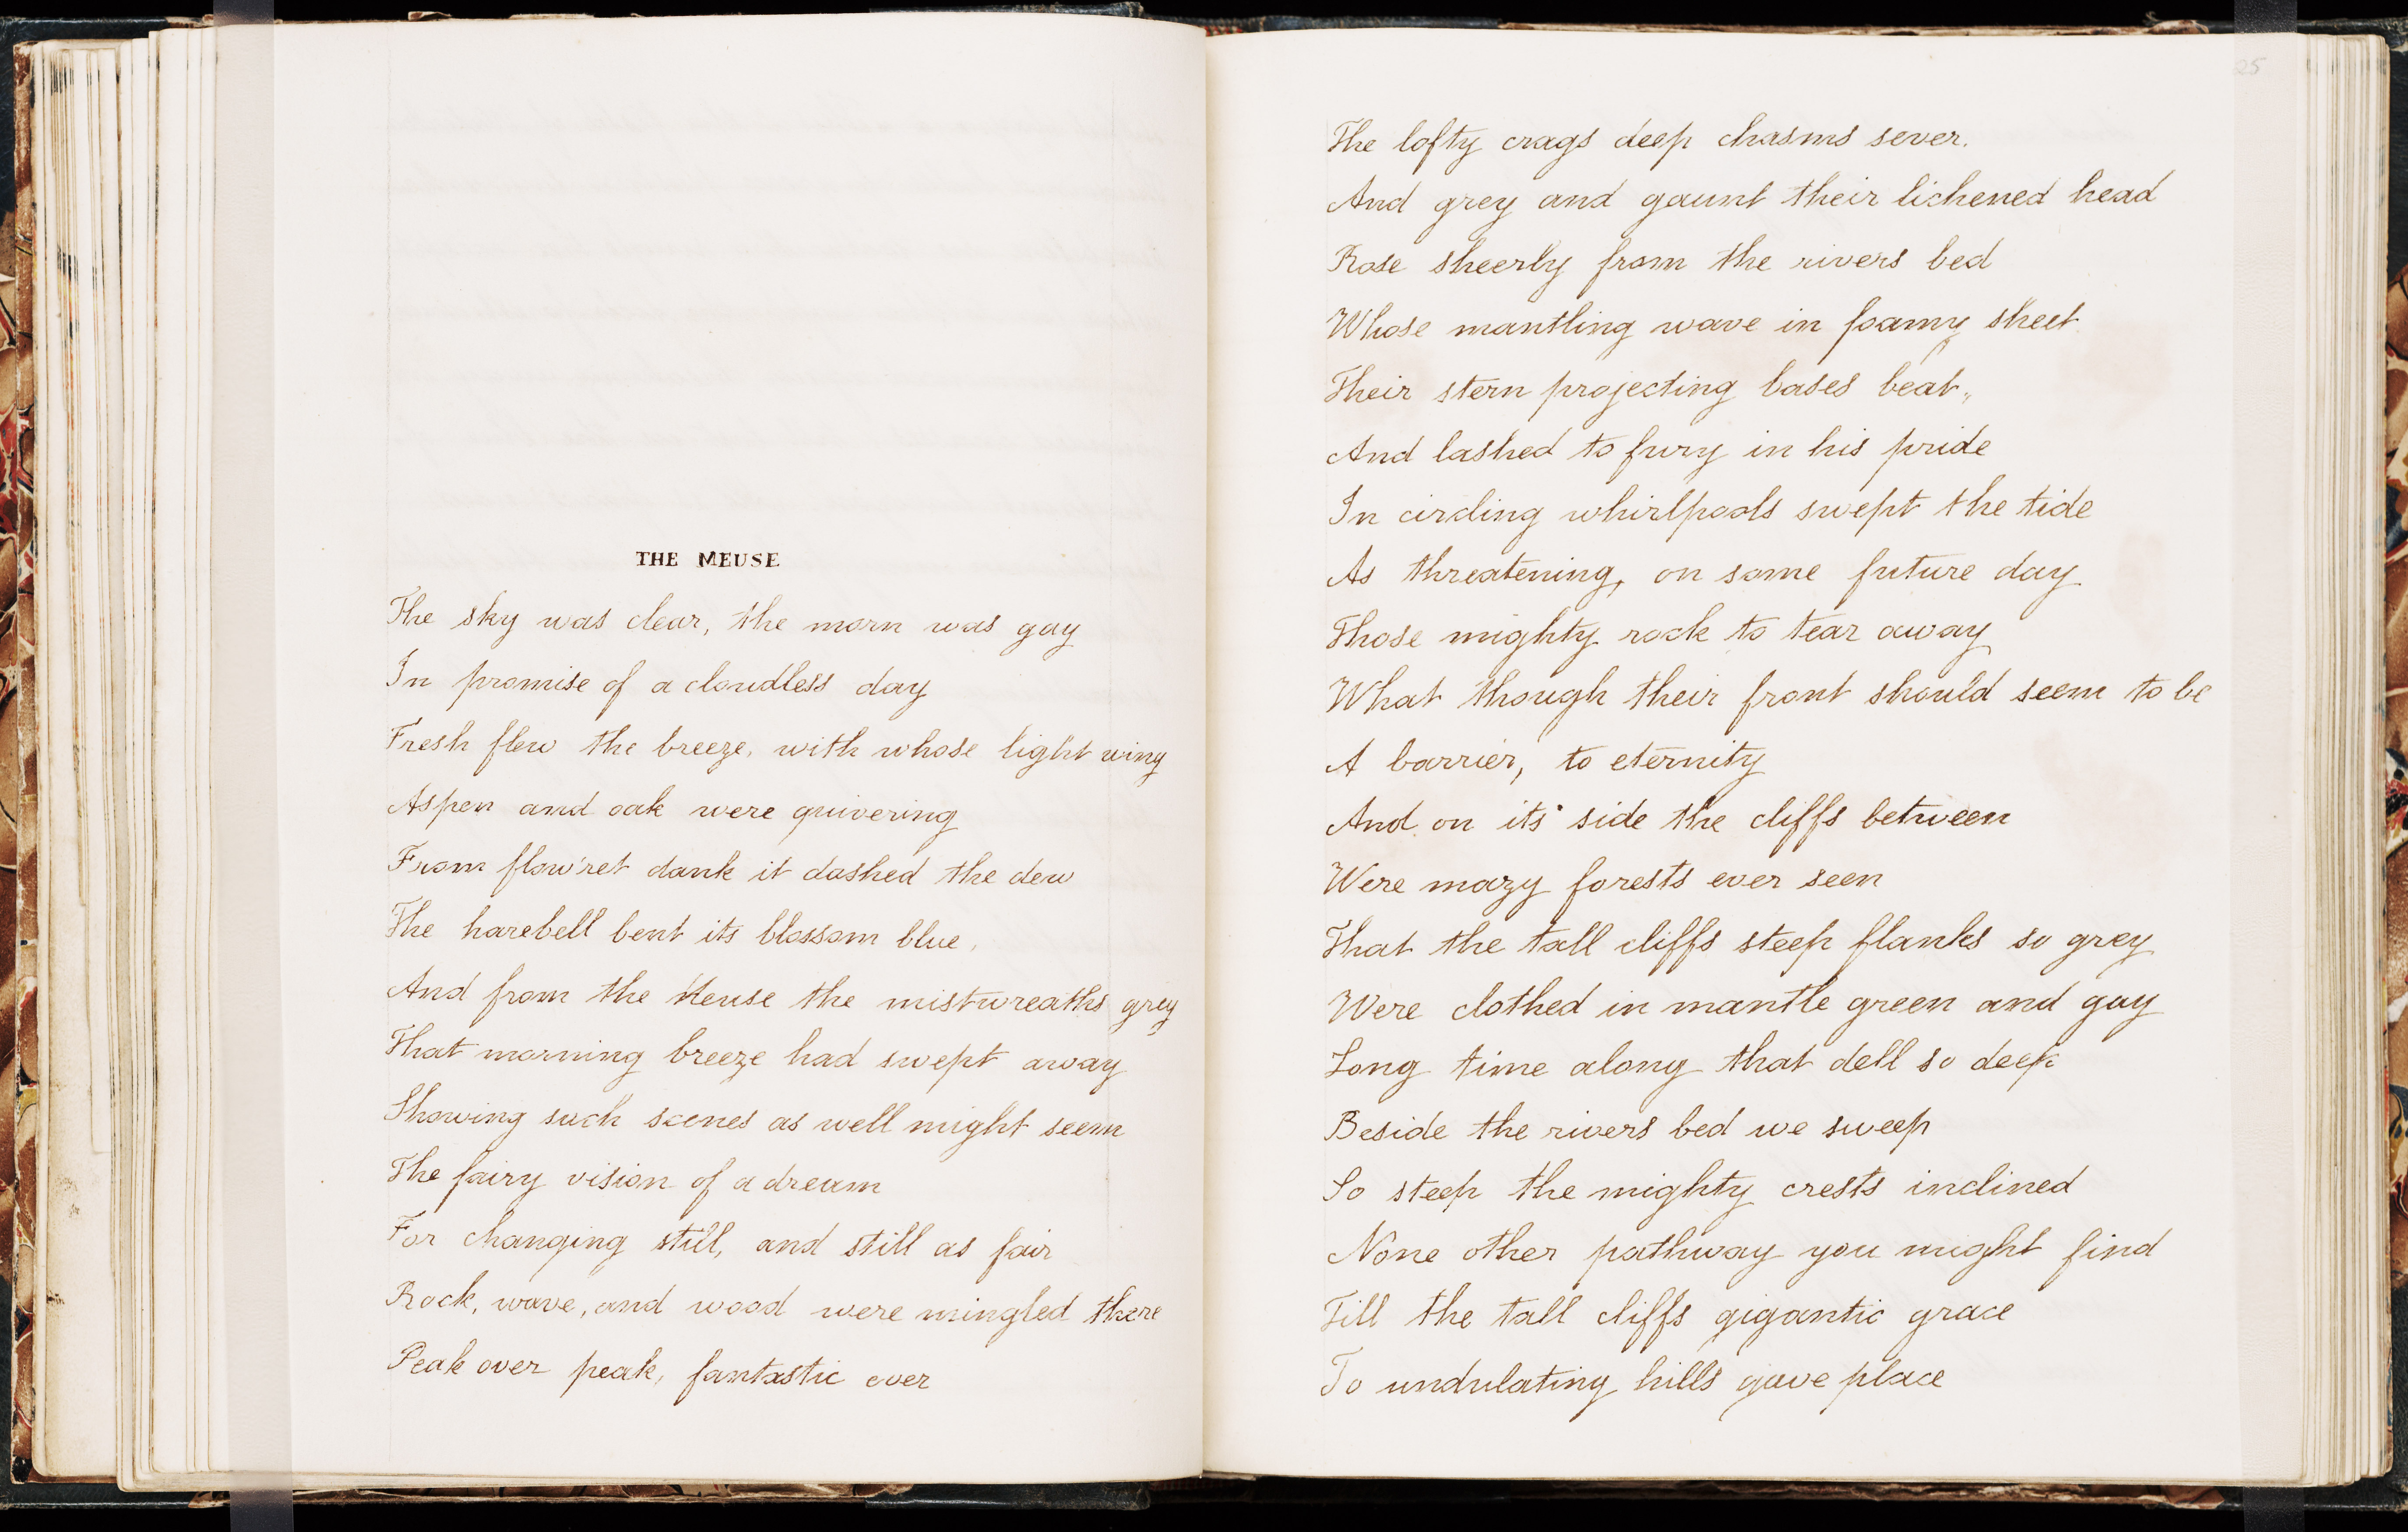 THE MEUSE
The sky was clear, the morn was gay
In promise of a cloudless day
Fresh flew the breeze, with whose light wing
Aspen and oak were quivering
From flow'ret dank it dashed the dew
The harebell bent its blossom blue,
And from the Meuse the mistwreaths grey
That morning breeze had swept away
Showing such scenes as well might seem
The fairy vision of a dream
For changing still, and still as fair
Rock, wave, and wood were mingled there
Peak over peak, fantastic ever
25
The lofty crags deep chasms sever.
And grey and gaunt their lichened head
Rose sheerly from the rivers bed
Whose mantling wave in foamy sheet
Their stern projecting bases beat,
And lashed to fury in his pride
In circling whirlpools swept the tide
As threatening, on some future day
Those mighty rock to tear away
What though their front should seem to be
A barrier, to eternity
And on its' side the cliffs between
Were mazy forests ever seen
That the tall cliffs steep flanks so grey
Were clothed in mantle green and gay
Long time along that dell so deep
Beside the rivers bed we sweep
So steep the mighty crests inclined
None other pathway you might find
Till the tall cliffs gigantic grace
To undulating hills gave place